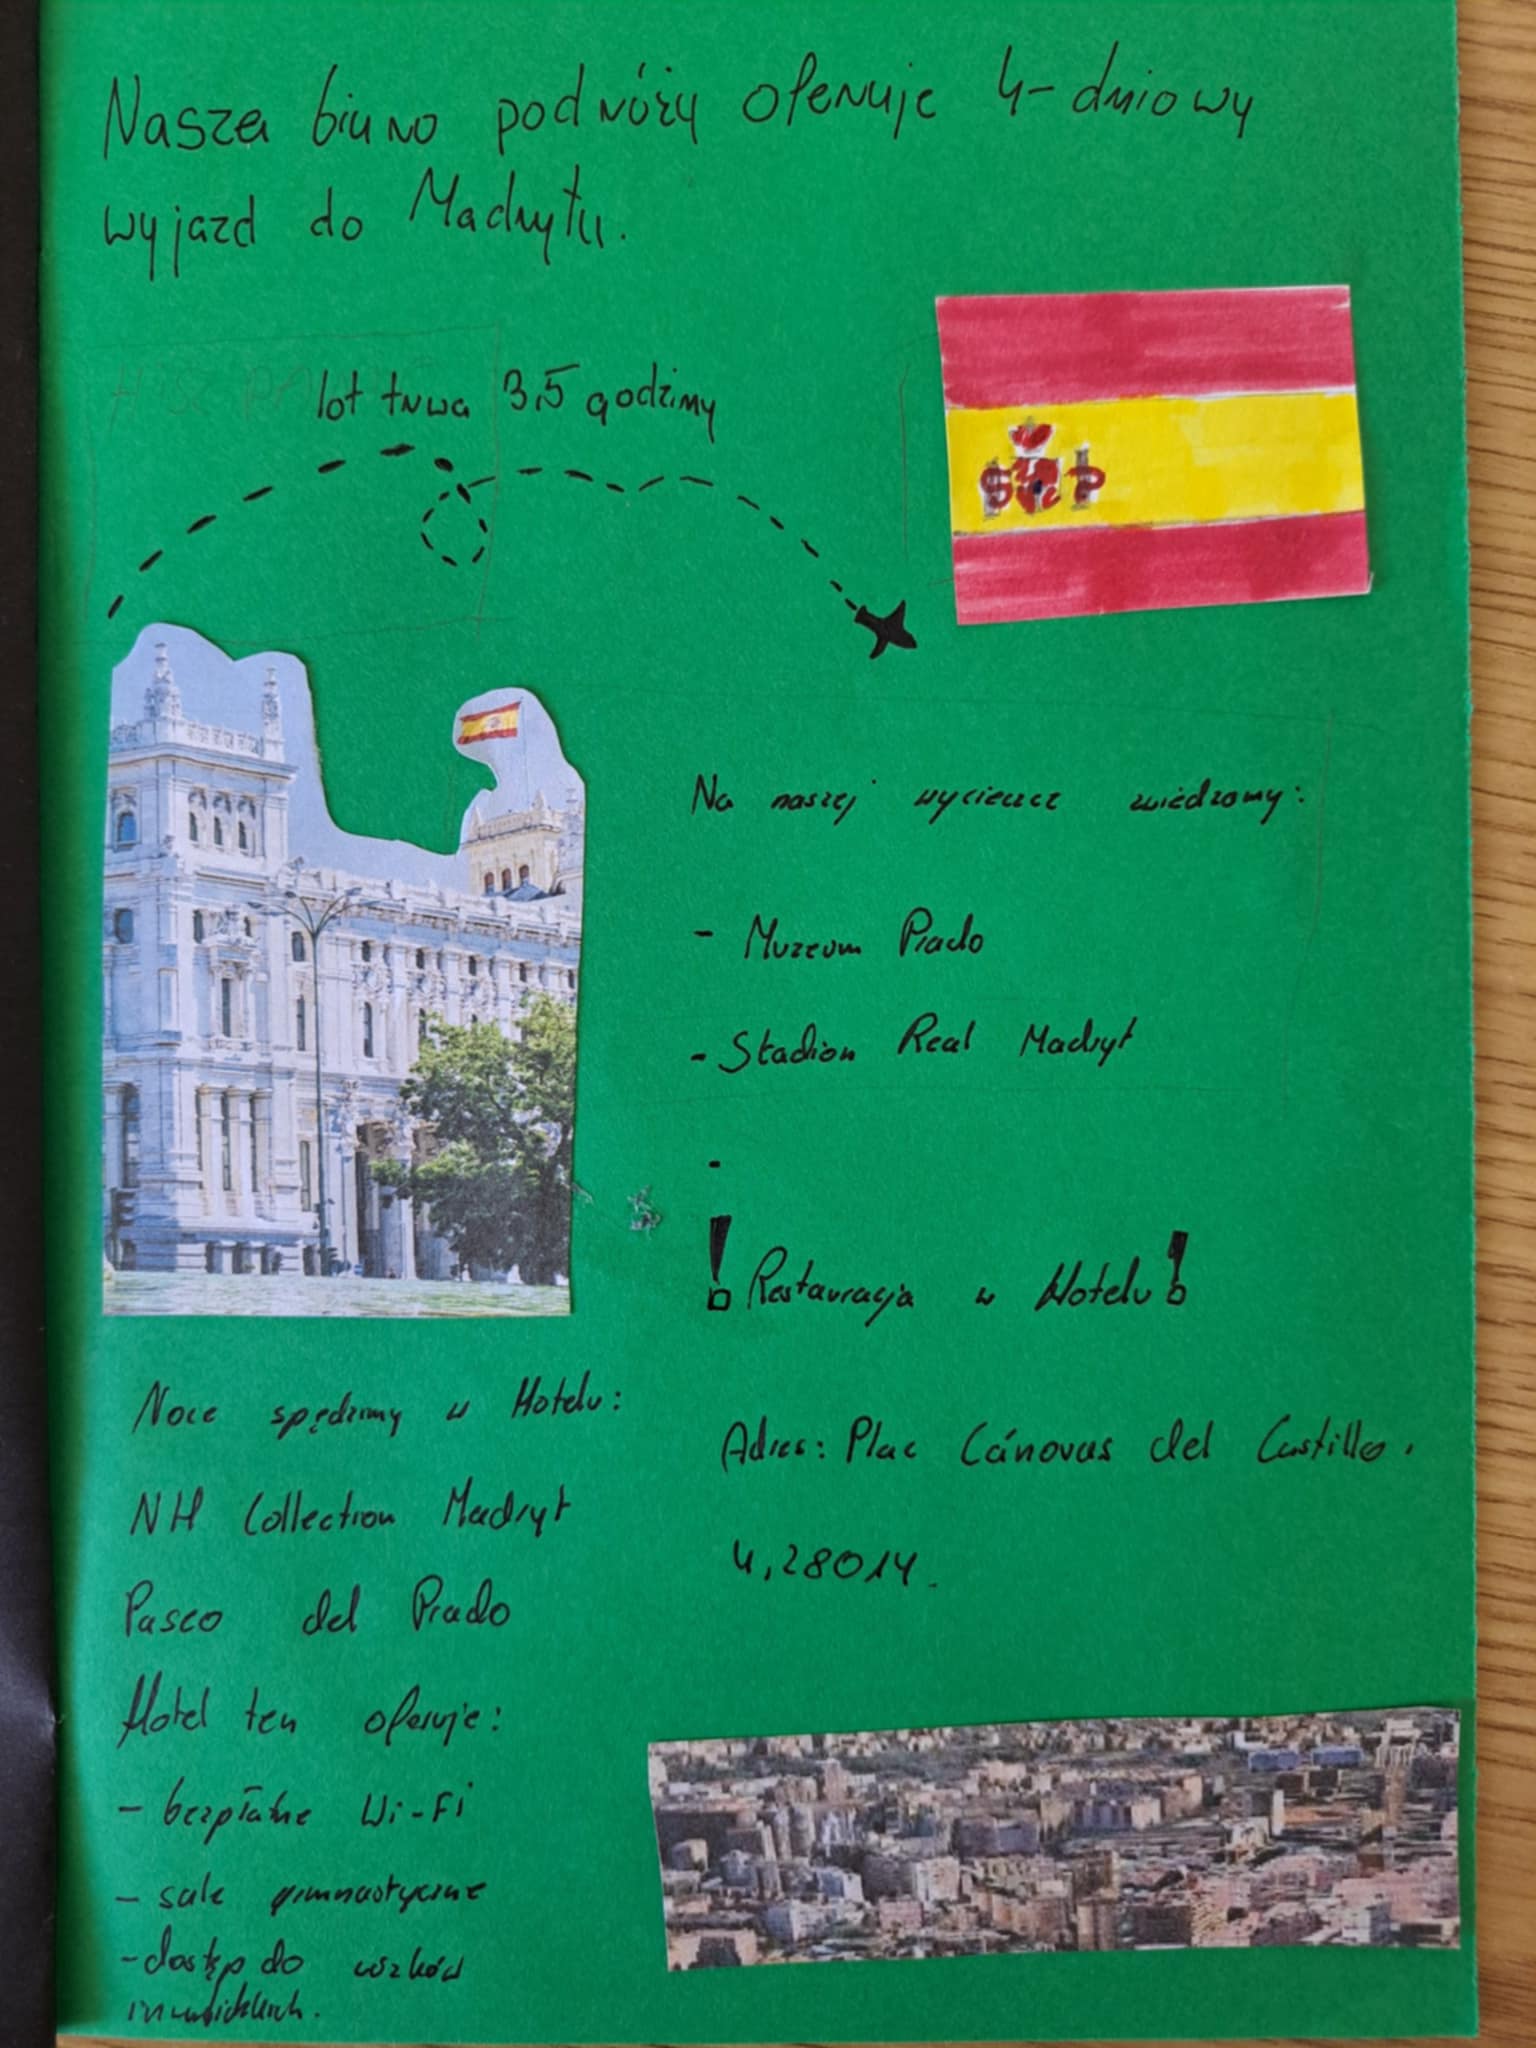 Nasze biuro podróży oferuje 4-dniowy
wyjazd do Madrytu.
lot trwa 3,5 godziny
Na naszej wycieczce zwiedzamy:
- Muzeum Prado
- Stadion Real Madryt
-
! Restauracja w Hotelu !
Noce spędzimy w Hotelu:
NH Collection Madryt
Paseo del Prado
Hotel ten oferuje:
- bezpłatne Wi-Fi
- sale gimnastyczne
- dostęp do wózków
inwalidzkich.
Adres: Plac Cánovas del Castillo.
4,28014.